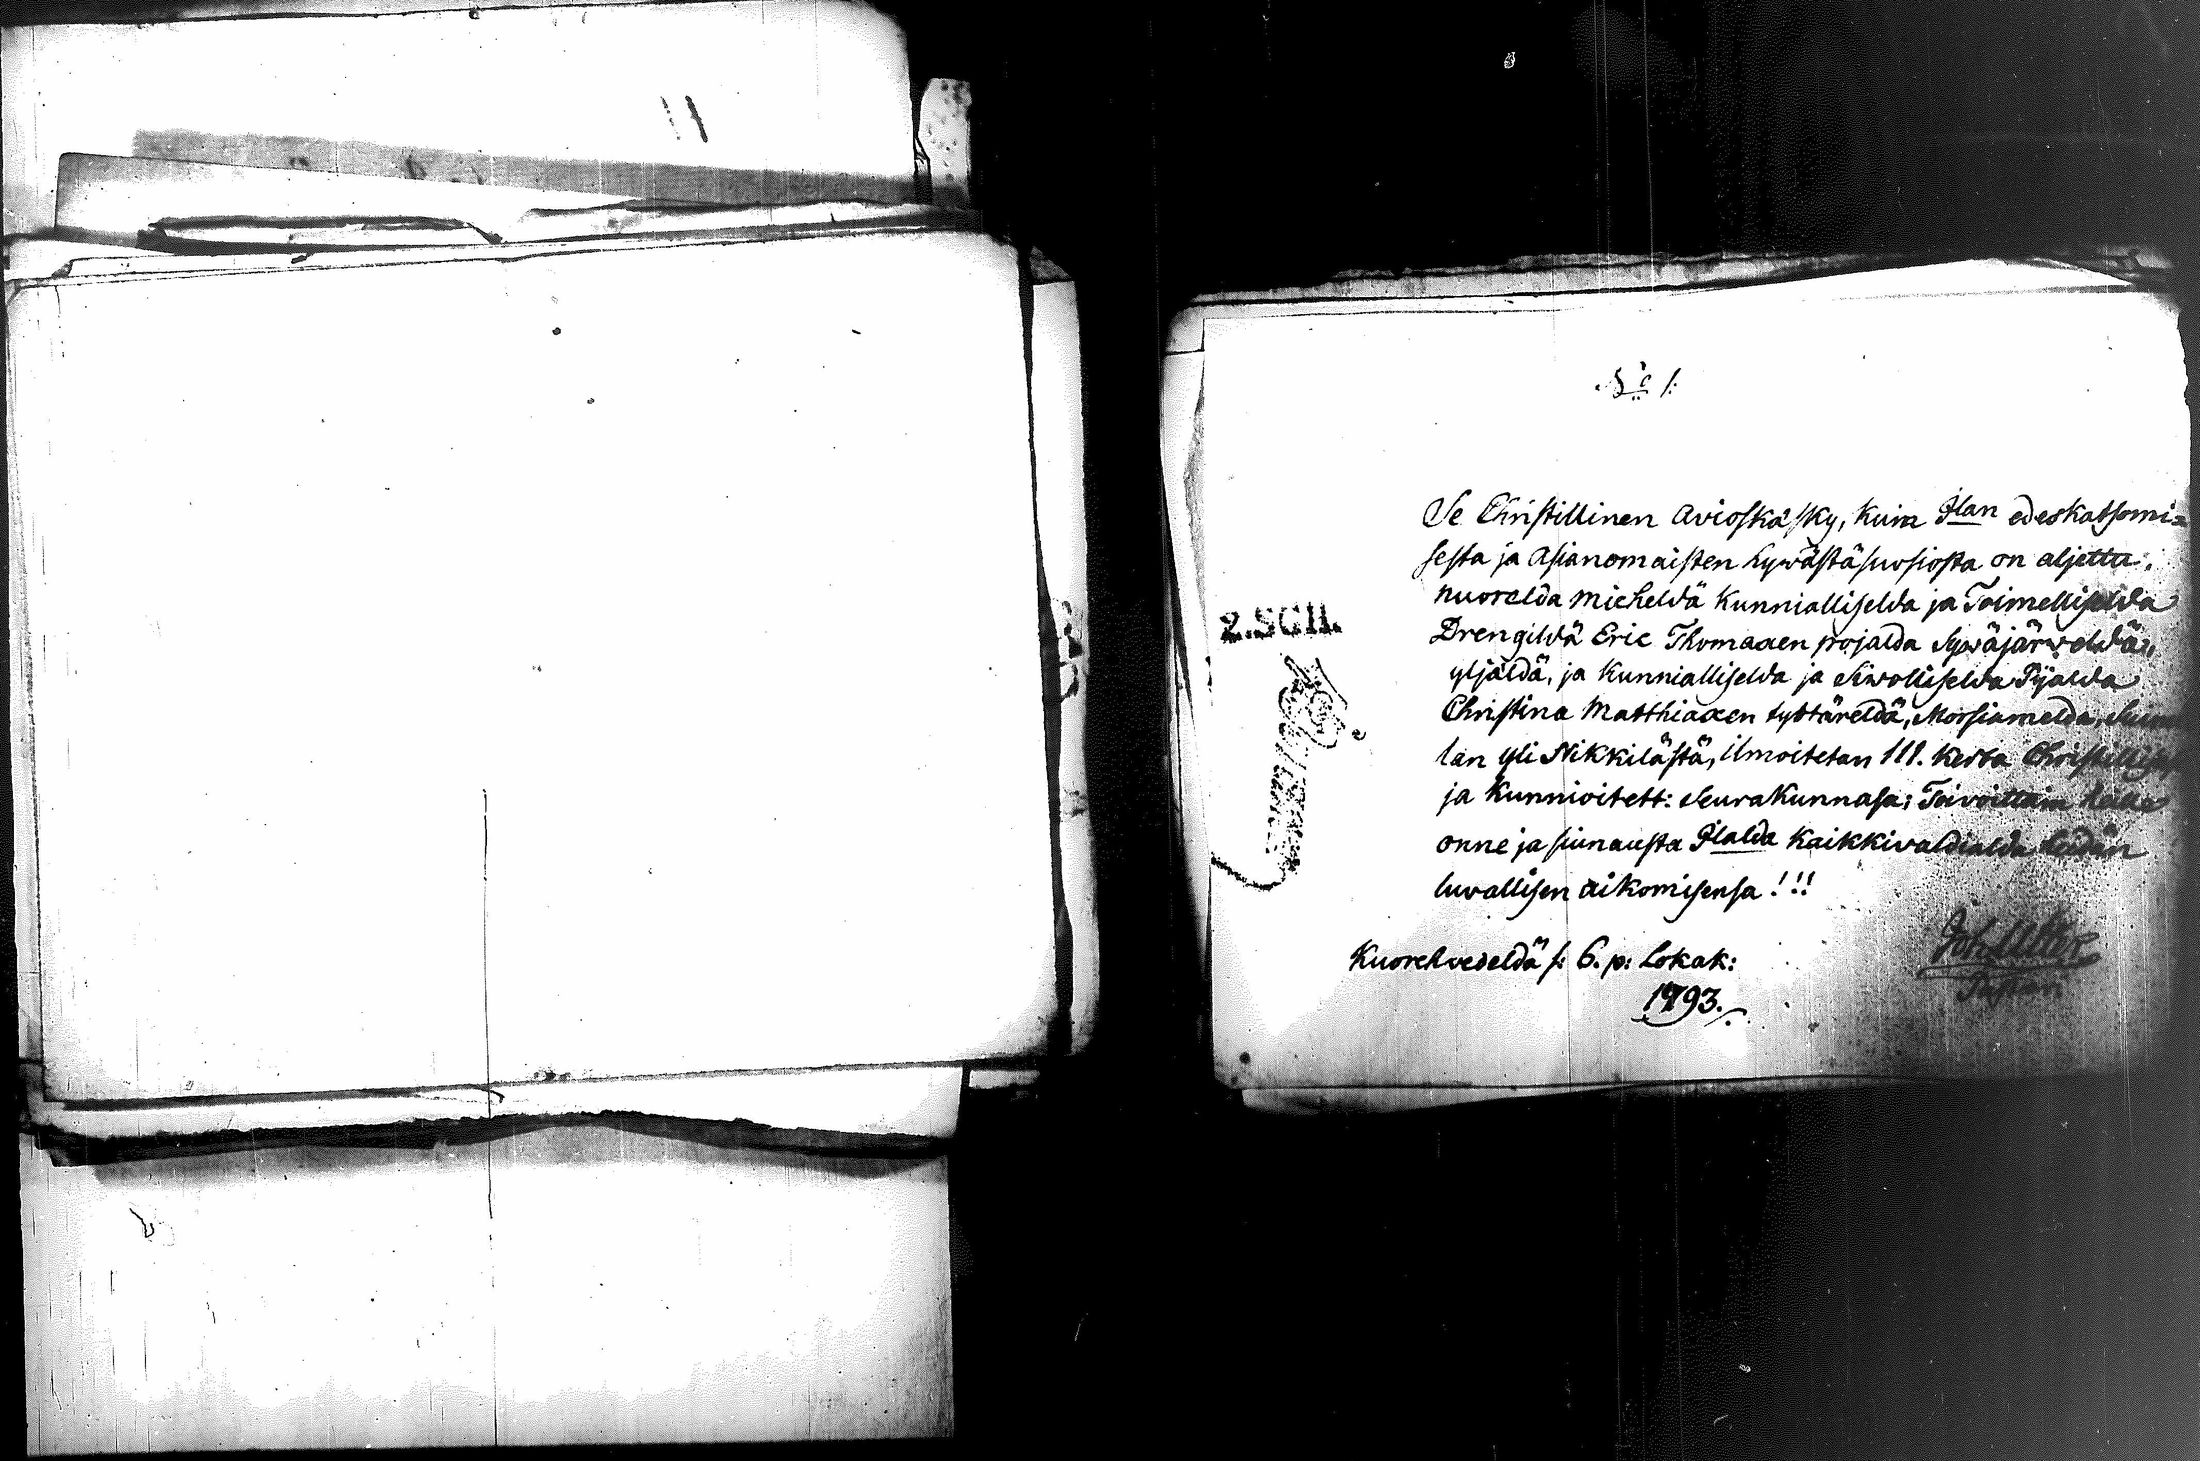 N:o 1:
Se Christillinen Avioskäsky, kuin Jlan edeskatsomi=
sesta ja Asianomaisten hywästäsuosiosta on aljettu,
nuorelda Micheldä Kunnialliselda ja Toimelliselda
Drengildä Eric Thomaxen pojalda Sywäjärweldä,
yljäldä, ja Kunnialliselda ja Siwolliselda Pijalda
Christina Matthiaxen tyttäreldä, Morsiamelda,
lan yli Nikkilästä, ilmoitetan 111. Kerta
ja Kunnioitett: Seurakunnasa; Toivottain
onne ja siunausta Jlalda Kaikkivaldialda heidän
luvallisen aikomisensa!!!
Kuorehvedeldä s: 6. p: Lokak:
1793.
2.SCH.